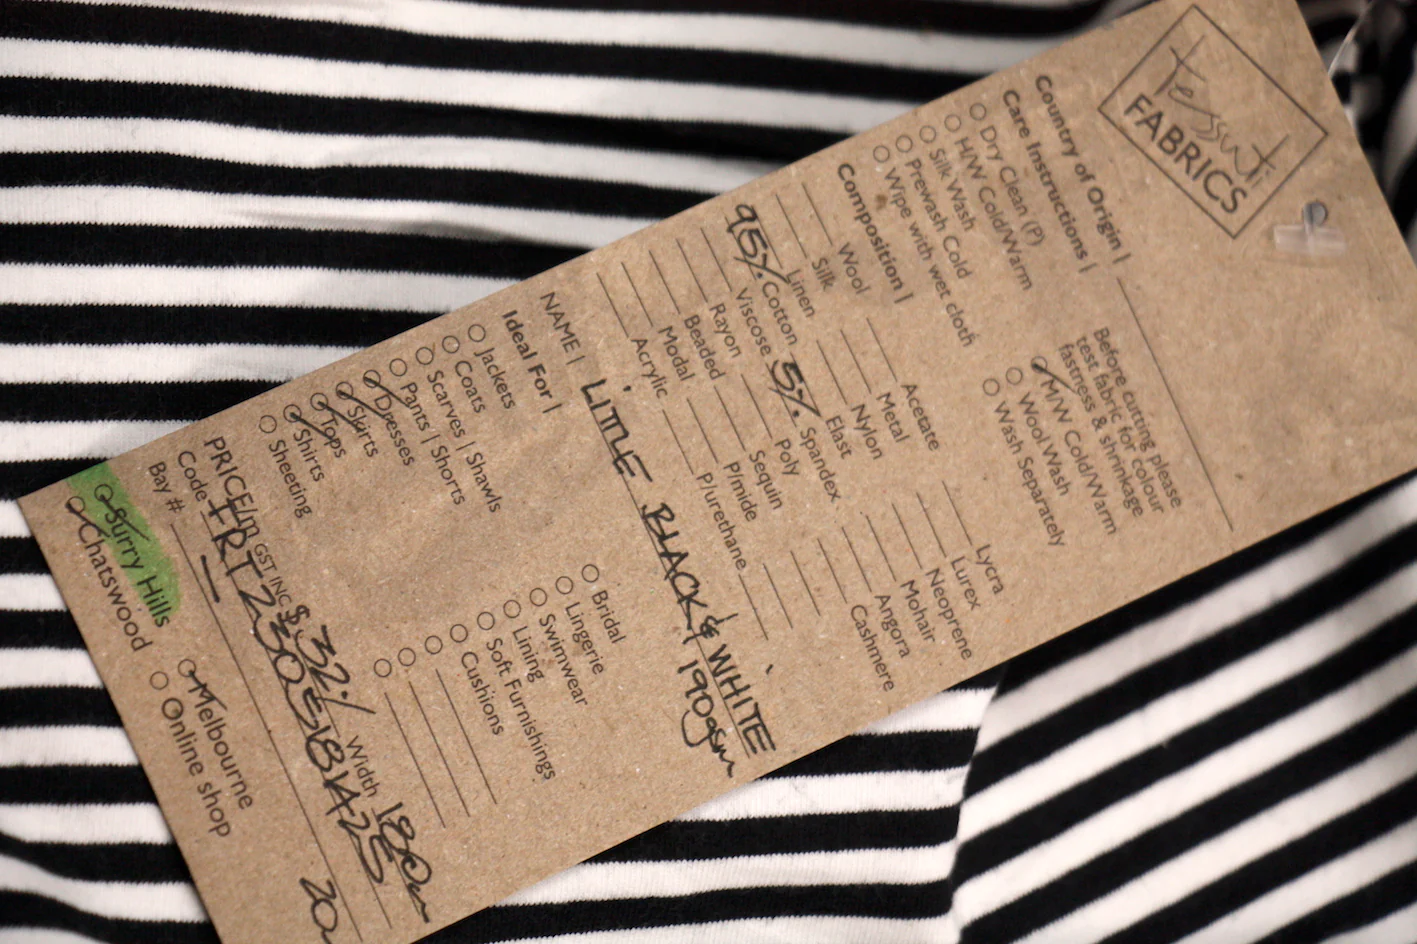 tessuti
FABRICS
Country of Origin |
Care Instructions |
Before cutting please
test fabric for colour
fastness & shrinkage
Dry Clean (P)
H/W Cold/Warm
Silk Wash
Prewash Cold
Wipe with wet cloth
M/W Cold/Warm
Wool Wash
Wash Separately
Composition |
Wool
Silk
Linen
95% Cotton
Viscose
Rayon
Beaded
Modal
Acrylic
Acetate
Metal
Nylon
Elast
5% Spandex
Poly
Sequin
P/mide
P/urethane
Lycra
Lurex
Neoprene
Mohair
Angora
Cashmere
NAME | LITTLE BLACK & WHITE
190gsm
Ideal For |
Jackets
Coats
Scarves | Shawls
Pants | Shorts
Dresses
Skirts
Tops
Shirts
Sheeting
Bridal
Lingerie
Swimwear
Lining
Soft Furnishings
Cushions
PRICE/m GST INC $32./ Width 180cm
Code
Bay #
20
Surry Hills
Chatswood
Melbourne
Online shop